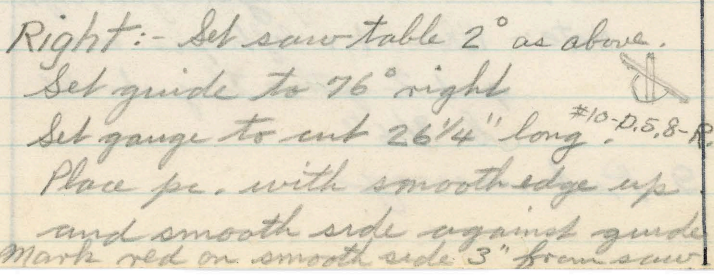 Right:- Set saw table 2° as above.
Set guide to 76° right
Set gauge to cut 26 1/4" long. #10-D.5,8-R.
Place pc. with smooth edge up
and smooth side against guide
Mark red on smooth side 3" from saw